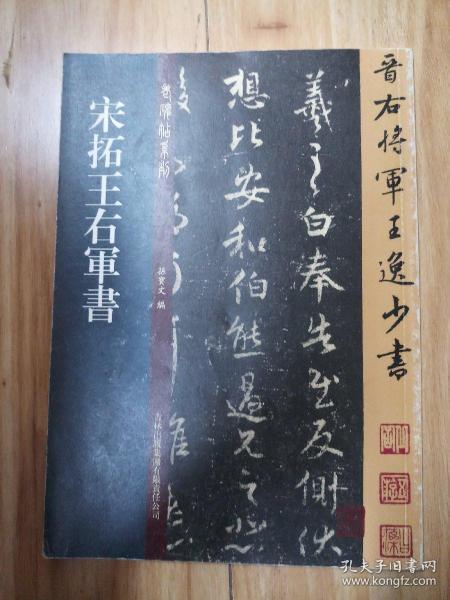 晋右将軍王逸少書
羲之白奉告慰反側伏
想比安和伯熊過兄之悲
宋拓王右軍書
老碑帖系列
孫寶文 編
吉林出版集團有限責任公司
孔夫子旧书网
www.kongfz.com